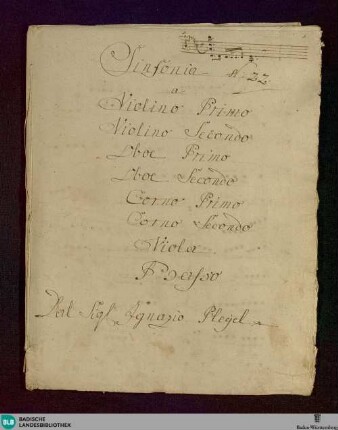 Sinfonia N: 22
a
Violino Primo
Violino Secondo
Oboe Primo
Oboe Secondo
Corno Primo
Corno Secondo
Viola
Basso
Del Sigl. Ignazio Pleyel
BLB BADISCHE
LANDESBIBLIOTHEK
Baden-Württemberg